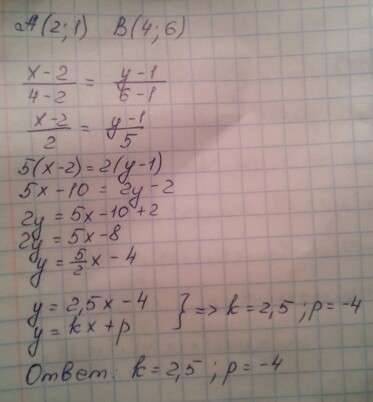 A(2;1) B(4;6)
(x-2)/(4-2) = (y-1)/(6-1)
(x-2)/2 = (y-1)/5
5(x-2)=2(y-1)
5x-10 = 2y-2
2y = 5x-10+2
2y = 5x-8
y = 5/2 x - 4
y = 2,5x-4 } => k = 2,5 ; p = -4
y = kx+p
Ответ: k = 2,5 ; p = -4